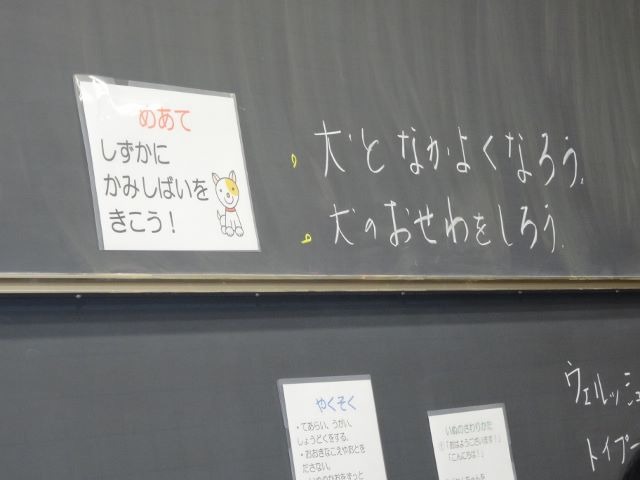 めあて
しずかに
かみしばいを
きこう！
犬となかよくなろう。
犬のおせわをしろう。
やくそく
・てあらい、うがい、
しょうどくをする。
・おおきなこえやおとを
ださない。
いぬのさわりかた
①「おはようございます！」
「こんにちは！」
ウェルッシュ
トイプー